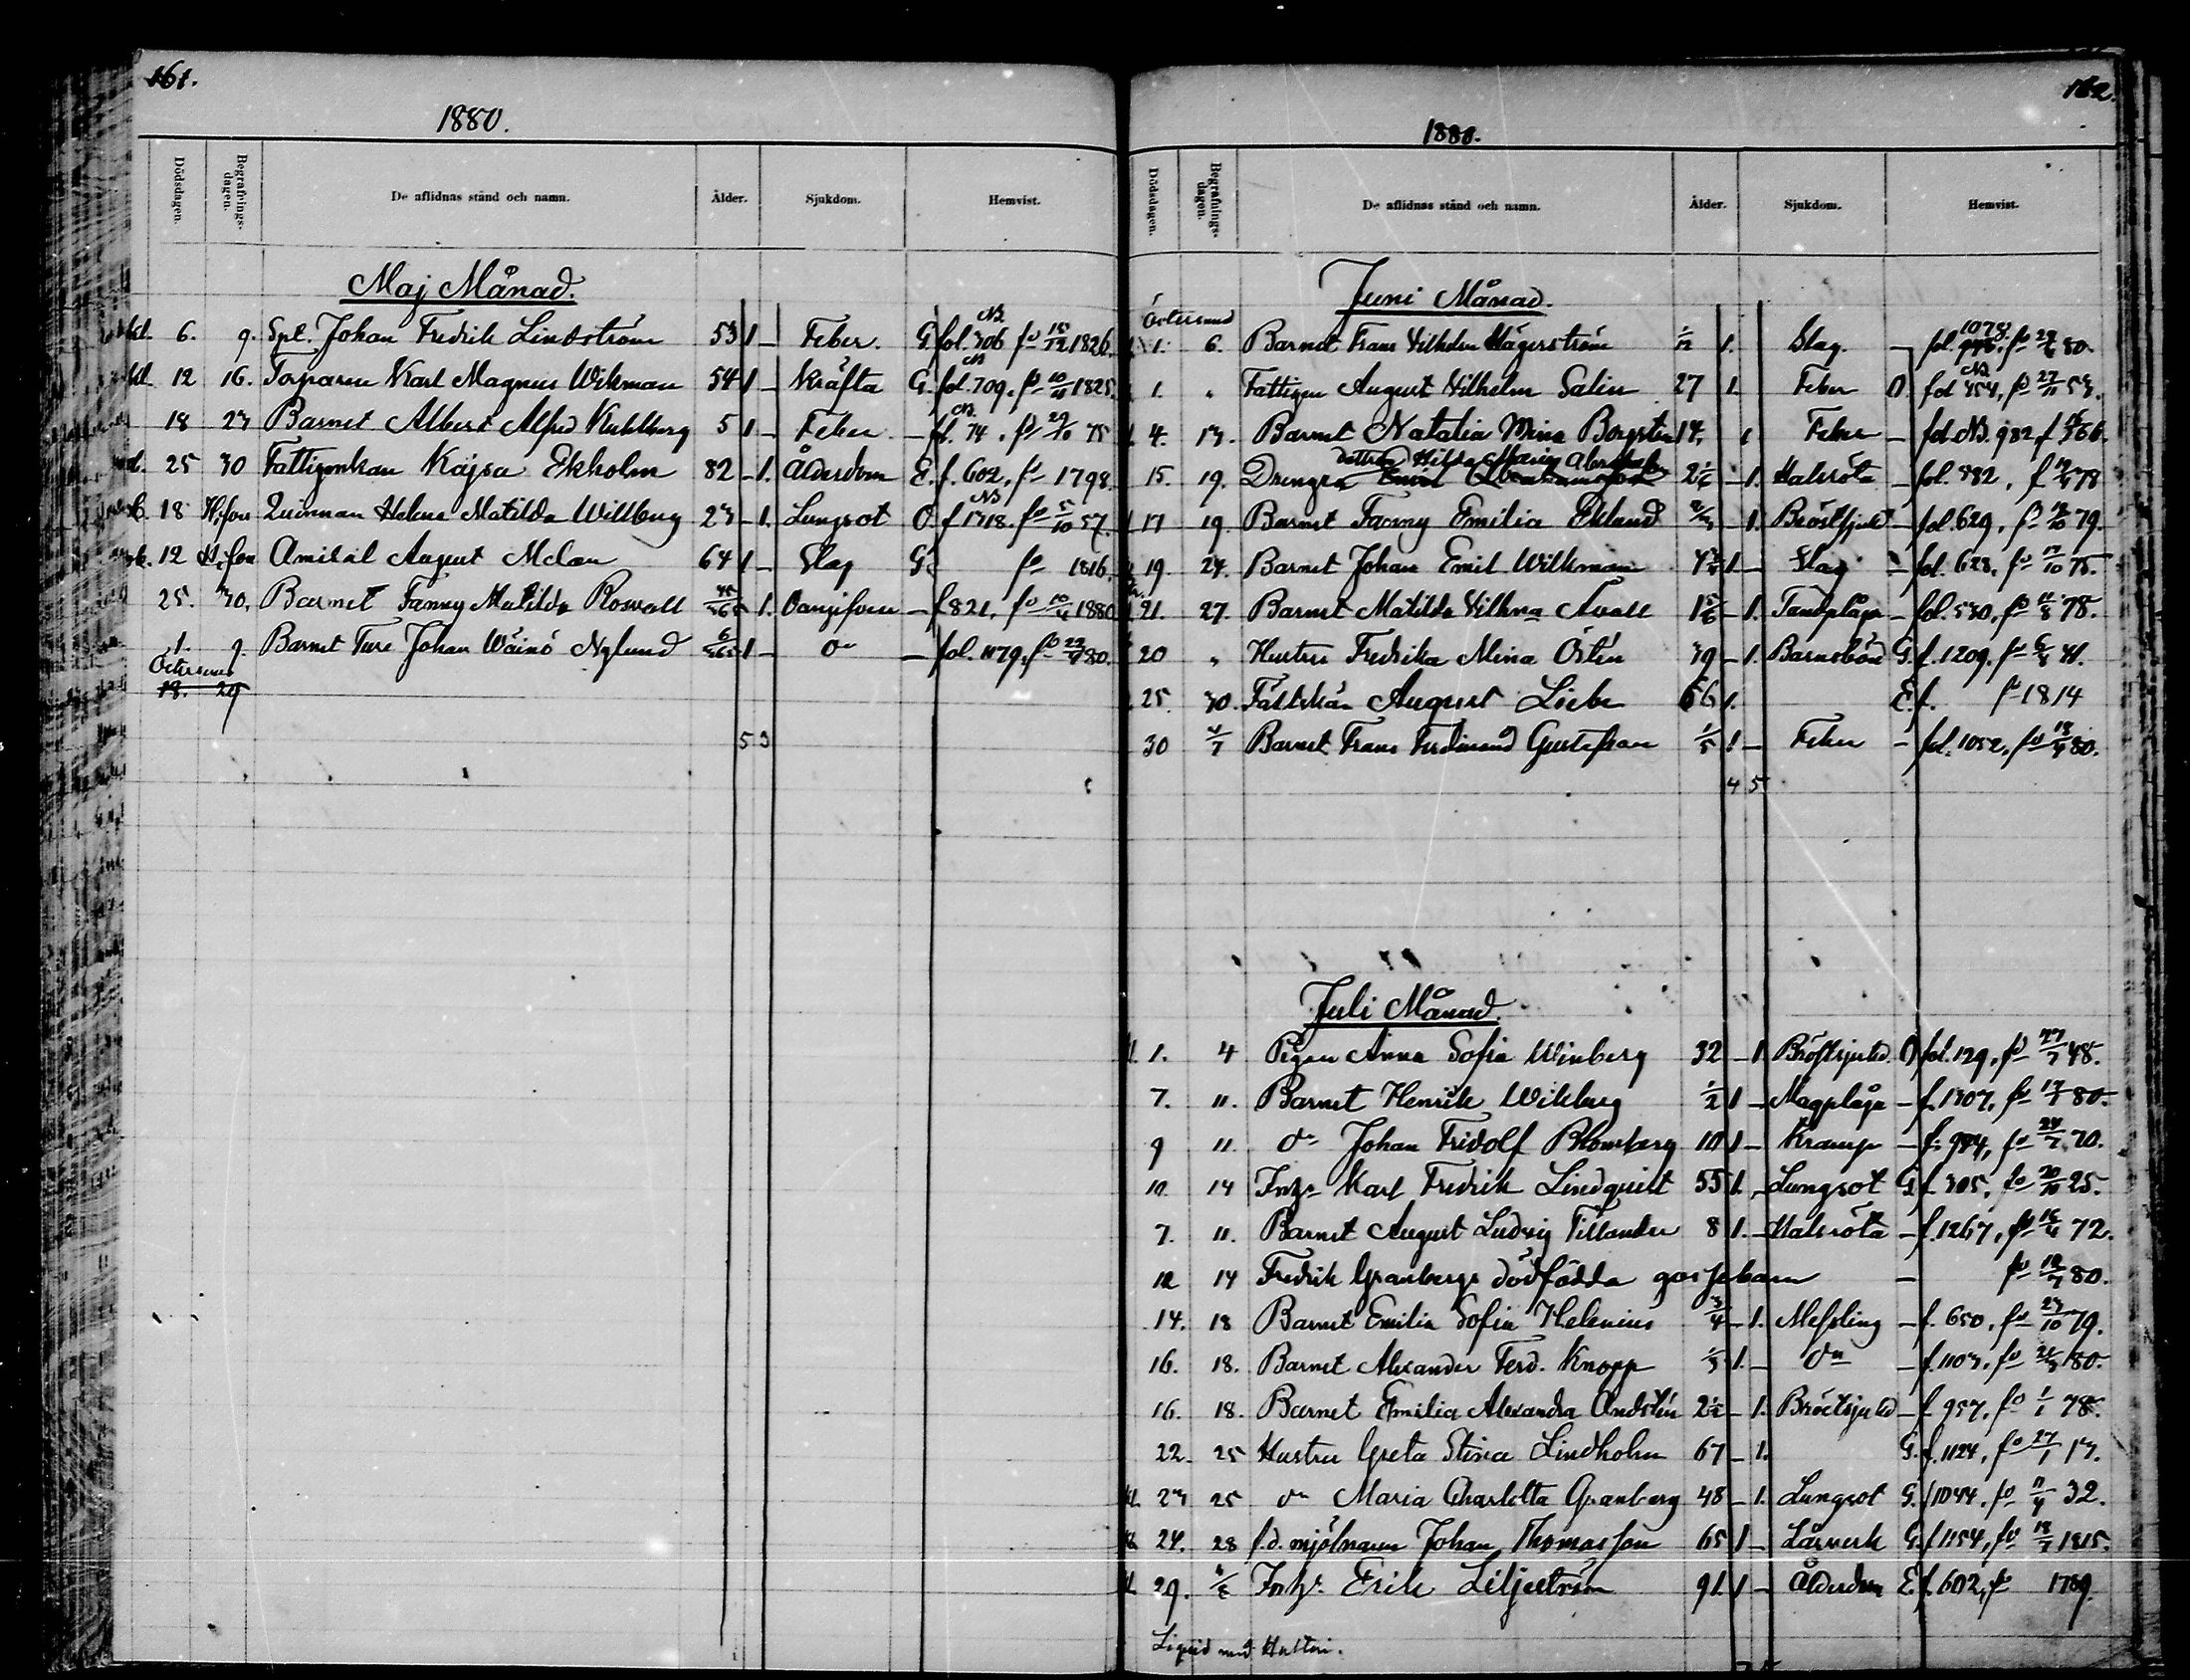 161.
1880.
Dödsdagen. Begrafnings-dagen. De aflidnas stånd och namn. Ålder. Sjukdom. Hemvist.
Maj Månad.
6. 9. Spl. Johan Fredrik Lindström 53 1 – Feber. G. fol. 306 f⁰ 12 1826.
12 16. Torparen Karl Magnus Wikman 54 1 – Kräfta G. fol. 709. f⁰ 1825.
18 23 Barnet Albert Alfred Kuhlberg 5 1 – Feber – fol. 74. f⁰ 29/10 75
25 30 Fattigenkan Kajsa Ekholm 82 – 1. Ålderdom E. f. 602, f⁰ 1798.
18 H:fors Qvinnan Helena Matilda Willberg 23 – 1. Lungsot O. f 1318. f⁰ 5/10 57.
12 H:fors Amiral August Melan 64 1 – Slag G. f⁰ 1816.
25. 30. Barnet Fanny Matilda Roswall – 1. Okänd – f 821. f⁰ 10/4 1880
1. 9. Barnet Ture Johan Wäinö Nylund 1 – d:o – fol. 1079. f⁰ 80.
Östersund
18. 29
5 3
162.
1880.
Dödsdagen. Begrafnings-dagen. De aflidnas stånd och namn. Ålder. Sjukdom. Hemvist.
Juni Månad.
Östersund
1. 6. Barnet Frans Vilhelm Hägerström 1/12 1. Slag. – fol. 1078. f⁰ 80.
1. " Fattigen August Vilhelm Salin 27 1. Feber O. fol 454, f⁰ 27/11 53.
4. 13. Barnet Natalia Mina Bergsten 14. 1 Feber – fol. NB. 982. f 66.
dottren Hilda Maria
15. 19. Drengen 2 1/6 – 1. Halsröta – fol. 382, f 78
17 19. Barnet Fanny Emilia Eklund – 1. Bröstsjukd – fol. 629, f⁰ 79.
19. 24. Barnet Johan Emil Wilkman 4 1 – Slag – fol. 628. f⁰ 17/10 75.
21. 27. Barnet Matilda Vilhma Åvall 1 5/6 – 1. Tandplåga – fol. 530. f⁰ 11/8 78.
20 " Hustru Fredrika Mina Östén 39 – 1. Barnsbörd G. f. 1209. f⁰ 41.
25. 30. Fältskär August Liebe 66 1. E. f. f⁰ 1814
30 4/7 Barnet Frans Ferdinand Gustafsson 1/5 1 – Feber – fol. 1052. f⁰ 18/4 80.
4 5
Juli Månad.
1. 4 Pigan Anna Sofia Winberg 32 – 1. Bröstsjukd. O. fol. 129. f⁰ 48.
7. 11. Barnet Henrik Wikberg 1/2 1 – Magplåga – f. 1307. f⁰ 80.
9 11 d:o Johan Fridolf Blomberg 10 1 – Kramp – f. 994, f⁰ 24/7 70.
10. 14 Inhs Karl Fredrik Lindquist 55 1. – Lungsot G. f. 305. f⁰ 20/10 25.
7. 11. Barnet August Ludvig Tillander 8 1. – Halsröta – f. 1267, f⁰ 72.
12 14 Fredrik Granbergs dödfödda gossebarn – f⁰ 12/7 80.
14. 18 Barnet Emilia Sofia Helenius 3/4 – 1. Messling – f. 650. f⁰ 23/10 79.
16. 18. Barnet Alexander Ferd. Knopp 1/3 1. – d:o – f. 1103. f⁰ 80.
16. 18. Barnet Emilia Alexandra Andstén 2 1/2 – 1. Bröstsjukd – f. 957. f⁰ 1/1 78.
22. 25 Hustru Greta Stina Lindholm 67 – 1. G. f. 1124. f⁰ 27/1 13.
23 25 d:o Maria Charlotta Granberg 48 – 1. Lungsot G. f 1044. f⁰ 32.
24. 28 f.d. mjölnaren Johan Thomasson 65 1 – Lårverk G. f 1154, f⁰ 18/7 1815.
29. Inhs. Erik Liljeström 91. 1 – Ålderdom E. f. 602, f⁰ 1789.
Liqvid med Hultin.